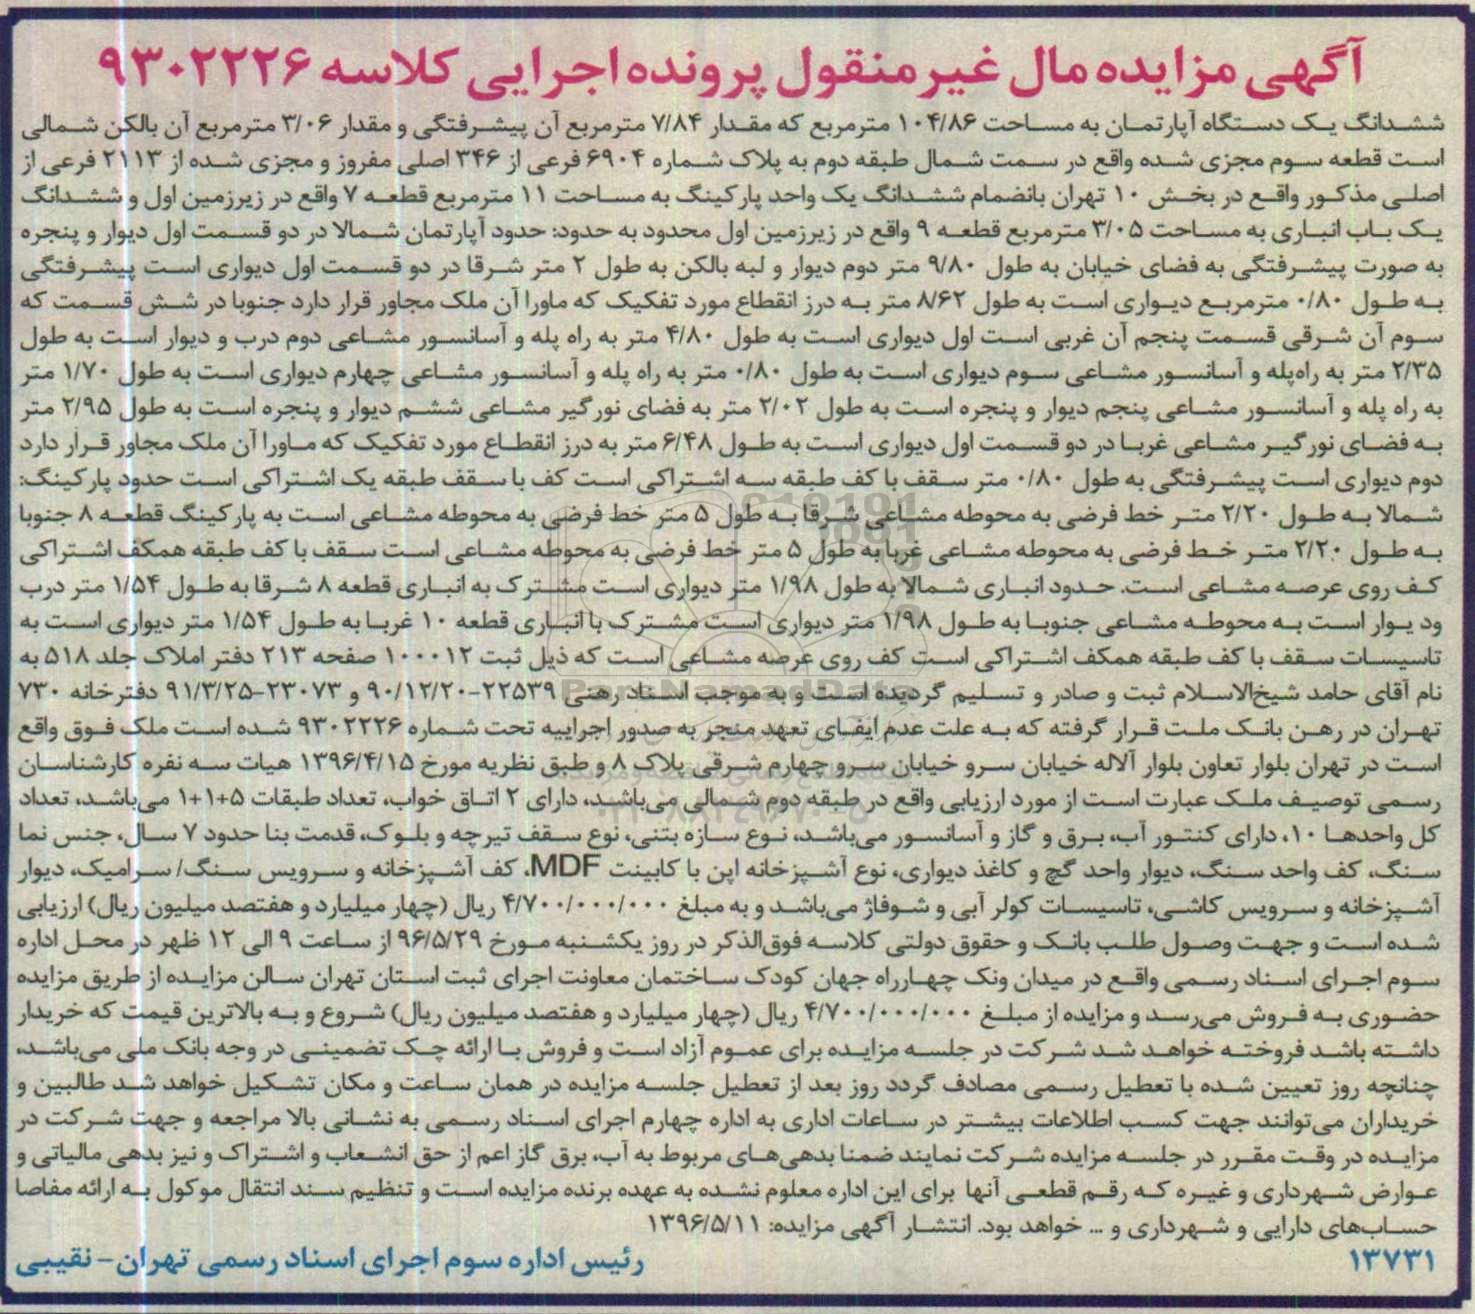 آگهی مزایده مال غیرمنقول پرونده اجرایی کلاسه ۹۳۰۲۲۲۶
ششدانگ یک دستگاه آپارتمان به مساحت ۱۰۴/۸۶ مترمربع که مقدار ۷/۸۴ مترمربع آن پیشرفتگی و مقدار ۳/۰۶ مترمربع آن بالکن شمالی
است قطعه سوم مجزی شده واقع در سمت شمال طبقه دوم به پلاک شماره ۶۹۰۴ فرعی از ۳۴۶ اصلی مفروز و مجزی شده از ۲۱۱۳ فرعی از
اصلی مذکور واقع در بخش ۱۰ تهران بانضمام ششدانگ یک واحد پارکینگ به مساحت ۱۱ مترمربع قطعه ۷ واقع در زیرزمین اول و ششدانگ
یک باب انباری به مساحت ۳/۰۵ مترمربع قطعه ۹ واقع در زیرزمین اول محدود به حدود: حدود آپارتمان شمالا در دو قسمت اول دیوار و پنجره
به صورت پیشرفتگی به فضای خیابان به طول ۹/۸۰ متر دوم دیوار و لبه بالکن به طول ۲ متر شرقا در دو قسمت اول دیواری است پیشرفتگی
به طول ۰/۸۰ مترمربع دیواری است به طول ۸/۶۲ متر به درز انقطاع مورد تفکیک که ماورا آن ملک مجاور قرار دارد جنوبا در شش قسمت که
سوم آن شرقی قسمت پنجم آن غربی است اول دیواری است به طول ۴/۸۰ متر به راه پله و آسانسور مشاعی دوم درب و دیوار است به طول
۲/۳۵ متر به راه‌پله و آسانسور مشاعی سوم دیواری است به طول ۰/۸۰ متر به راه پله و آسانسور مشاعی چهارم دیواری است به طول ۱/۷۰ متر
به راه پله و آسانسور مشاعی پنجم دیوار و پنجره است به طول ۲/۰۲ متر به فضای نورگیر مشاعی ششم دیوار و پنجره است به طول ۲/۹۵ متر
به فضای نورگیر مشاعی غربا در دو قسمت اول دیواری است به طول ۶/۴۸ متر به درز انقطاع مورد تفکیک که ماورا آن ملک مجاور قرار دارد
دوم دیواری است پیشرفتگی به طول ۰/۸۰ متر سقف با کف طبقه سه اشتراکی است کف با سقف طبقه یک اشتراکی است حدود پارکینگ:
شمالا به طول ۲/۲۰ متر خط فرضی به محوطه مشاعی شرقا به طول ۵ متر خط فرضی به محوطه مشاعی است به پارکینگ قطعه ۸ جنوبا
به طول ۲/۲۰ متر خط فرضی به محوطه مشاعی غربا به طول ۵ متر خط فرضی به محوطه مشاعی است سقف با کف طبقه همکف اشتراکی
کف روی عرصه مشاعی است. حدود انباری شمالا به طول ۱/۹۸ متر دیواری است مشترک به انباری قطعه ۸ شرقا به طول ۱/۵۴ متر درب
ود یوار است به محوطه مشاعی جنوبا به طول ۱/۹۸ متر دیواری است مشترک با انباری قطعه ۱۰ غربا به طول ۱/۵۴ متر دیواری است به
تاسیسات سقف با کف طبقه همکف اشتراکی است کف روی عرصه مشاعی است که ذیل ثبت ۱۰۰۰۱۲ صفحه ۲۱۳ دفتر املاک جلد ۵۱۸ به
نام آقای حامد شیخ‌الاسلام ثبت و صادر و تسلیم گردیده است و به موجب اسناد رهنی ۲۲۵۳۹-۹۰/۱۲/۲۰ و ۲۳۰۷۳-۹۱/۳/۲۵ دفترخانه ۷۳۰
تهران در رهن بانک ملت قرار گرفته که به علت عدم ایفای تعهد منجر به صدور اجراییه تحت شماره ۹۳۰۲۲۲۶ شده است ملک فوق واقع
است در تهران بلوار تعاون بلوار آلاله خیابان سرو خیابان سرو چهارم شرقی پلاک ۸ و طبق نظریه مورخ ۱۳۹۶/۴/۱۵ هیات سه نفره کارشناسان
رسمی توصیف ملک عبارت است از مورد ارزیابی واقع در طبقه دوم شمالی می‌باشد، دارای ۲ اتاق خواب، تعداد طبقات ۵+۱+۱ می‌باشد، تعداد
کل واحدها ۱۰، دارای کنتور آب، برق و گاز و آسانسور می‌باشد، نوع سازه بتنی، نوع سقف تیرچه و بلوک، قدمت بنا حدود ۷ سال، جنس نما
سنگ، کف واحد سنگ، دیوار واحد گچ و کاغذ دیواری، نوع آشپزخانه اپن با کابینت MDF، کف آشپزخانه و سرویس سنگ/ سرامیک، دیوار
آشپزخانه و سرویس کاشی، تاسیسات کولر آبی و شوفاژ می‌باشد و به مبلغ ۴/۷۰۰/۰۰۰/۰۰۰ ریال (چهار میلیارد و هفتصد میلیون ریال) ارزیابی
شده است و جهت وصول طلب بانک و حقوق دولتی کلاسه فوق‌الذکر در روز یکشنبه مورخ ۹۶/۵/۲۹ از ساعت ۹ الی ۱۲ ظهر در محل اداره
سوم اجرای اسناد رسمی واقع در میدان ونک چهارراه جهان کودک ساختمان معاونت اجرای ثبت استان تهران سالن مزایده از طریق مزایده
حضوری به فروش می‌رسد و مزایده از مبلغ ۴/۷۰۰/۰۰۰/۰۰۰ ریال (چهار میلیارد و هفتصد میلیون ریال) شروع و به بالاترین قیمت که خریدار
داشته باشد فروخته خواهد شد شرکت در جلسه مزایده برای عموم آزاد است و فروش با ارائه چک تضمینی در وجه بانک ملی می‌باشد،
چنانچه روز تعیین شده با تعطیل رسمی مصادف گردد روز بعد از تعطیل جلسه مزایده در همان ساعت و مکان تشکیل خواهد شد طالبین و
خریداران می‌توانند جهت کسب اطلاعات بیشتر در ساعات اداری به اداره چهارم اجرای اسناد رسمی به نشانی بالا مراجعه و جهت شرکت در
مزایده در وقت مقرر در جلسه مزایده شرکت نمایند ضمنا بدهی‌های مربوط به آب، برق گاز اعم از حق انشعاب و اشتراک و نیز بدهی مالیاتی و
عوارض شهرداری و غیره که رقم قطعی آنها برای این اداره معلوم نشده به عهده برنده مزایده است و تنظیم سند انتقال موکول به ارائه مفاصا
حساب‌های دارایی و شهرداری و ... خواهد بود. انتشار آگهی مزایده: ۱۳۹۶/۵/۱۱
۱۳۷۳۱ رئیس اداره سوم اجرای اسناد رسمی تهران- نقیبی
ParsNamadData